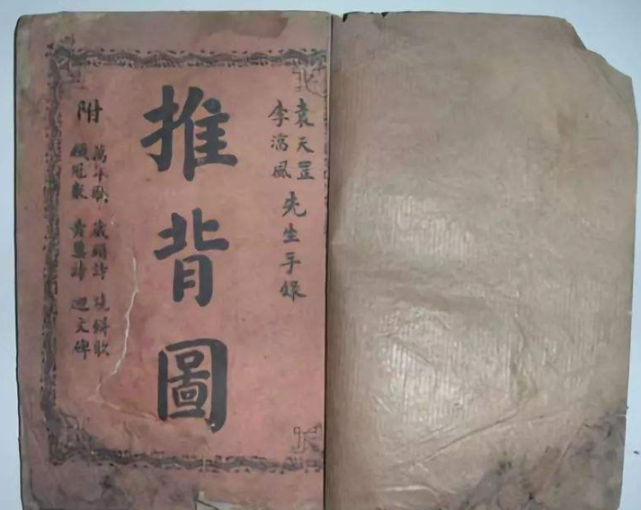 袁天罡
李淳風
先生手錄
推背圖
附
萬年歌 藏頭詩 燒餅歌
冠數 詩 文碑